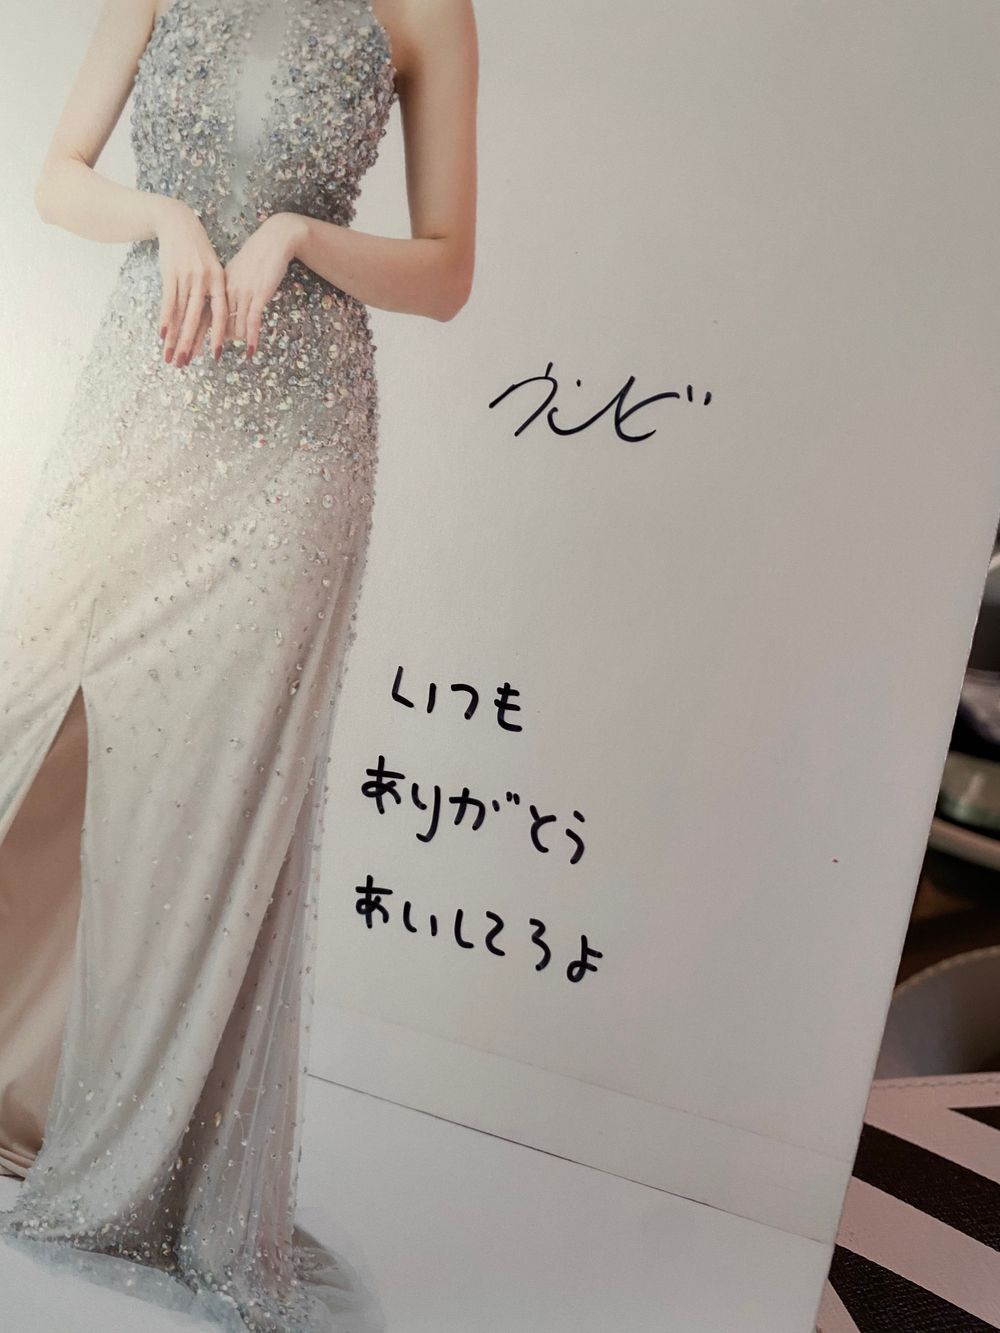 ウンビ
いつも
ありがとう
あいしてるよ